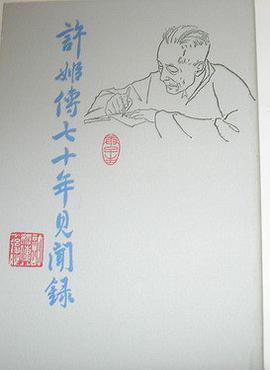 許姬傳七十年見聞錄